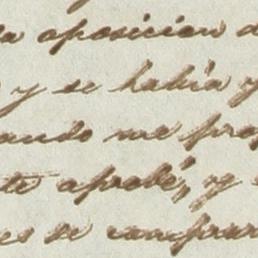 la oposicion d
y se habia y
ando me prop
te aprobé, y
es se compur